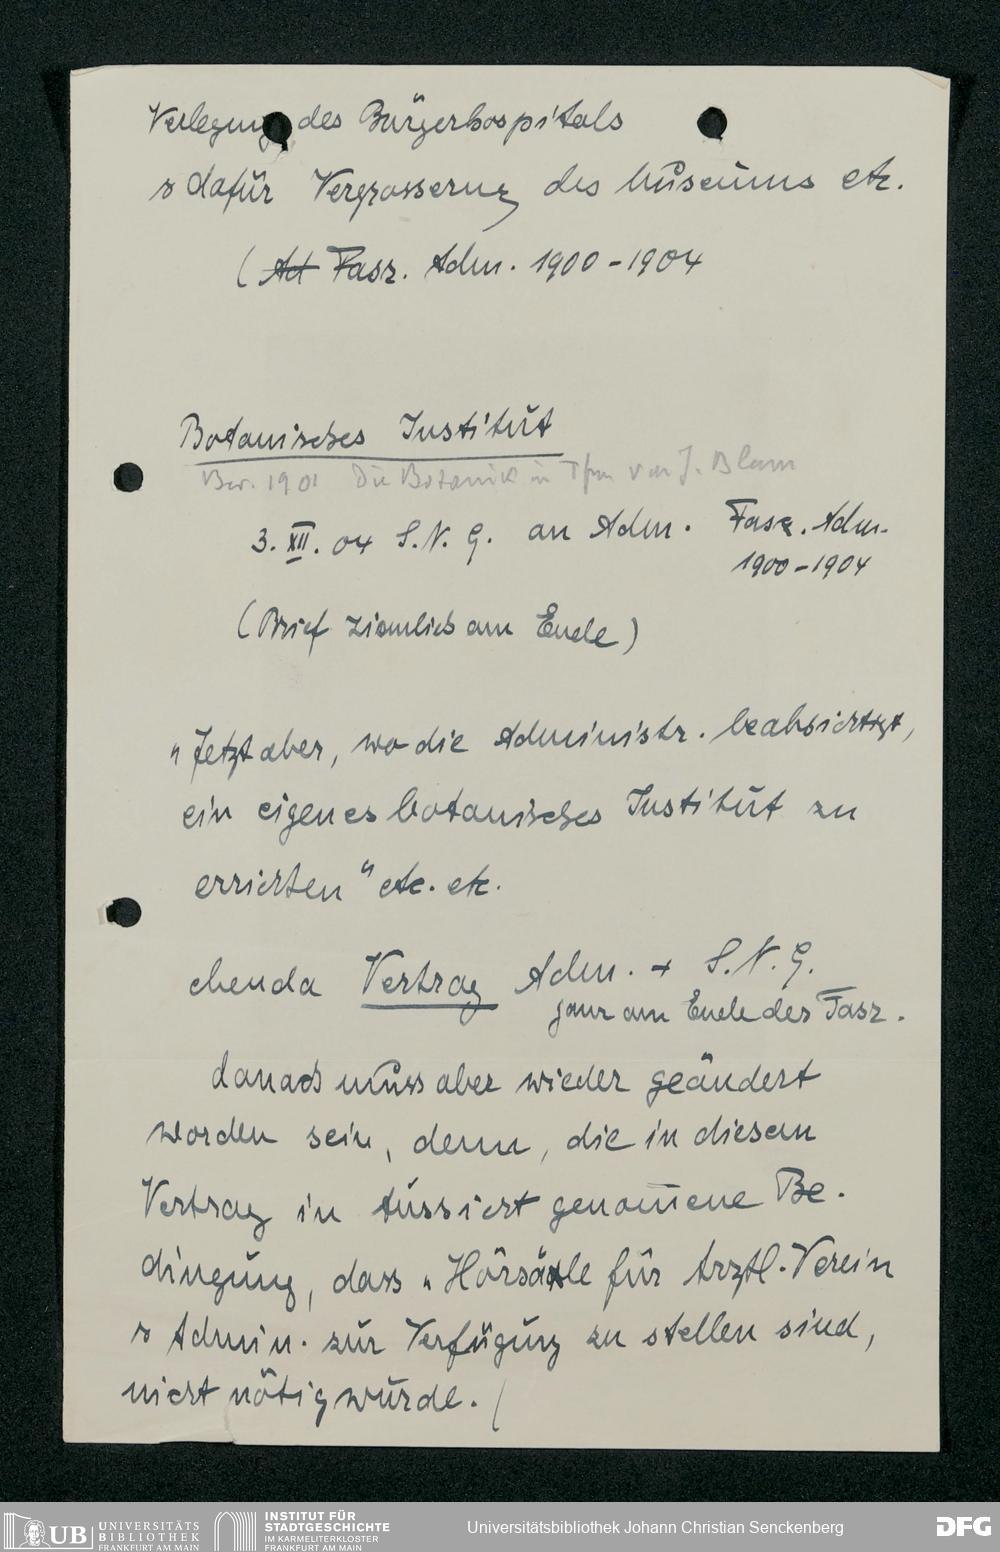 Verlegung des Bürgerhospitals
& dafür Vergrosserung des Museums etc.
(Ad Fasz. Adm. 1900-1904
Botanisches Institut
Ber. 1901 Die Botanik in Ffm von J. Blum
3. XII. 04 S. N. G. an Adm. Fasz. Adm.
1900-1904
(Brief ziemlich am Ende)
"Jetzt aber, wo die Administr. beabsichtigt,
ein eigenes botanisches Institut zu
errichten" etc. etc.
ebenda Vertrag Adm. + S. N. G.
ganz am Ende des Fasz.
danach muss aber wieder geändert
worden sein, denn, die in diesem
Vertrag in Aussicht genom̅ene Be-
dingung, dass "Hörsäle für Arztl. Verein
& Admin. zur Verfügung zu stellen sind,
nicht nötig wurde. /
UB UNIVERSITÄTS
BIBLIOTHEK
FRANKFURT AM MAIN
INSTITUT FÜR
STADTGESCHICHTE
IM KARMELITERKLOSTER
FRANKFURT AM MAIN
Universitätsbibliothek Johann Christian Senckenberg
DFG